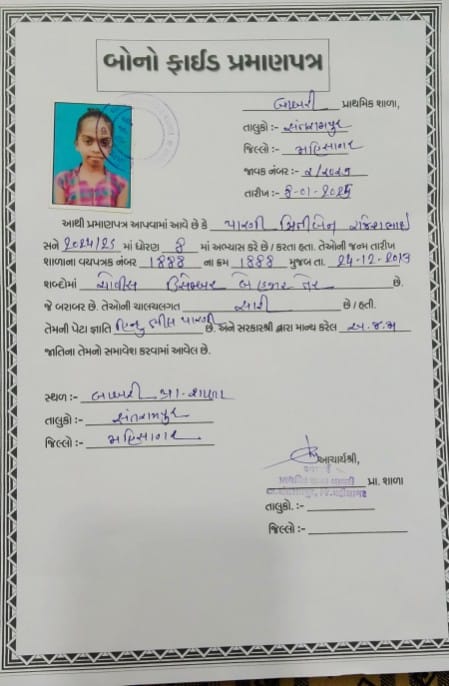 બોનો ફાઈડ પ્રમાણપત્ર
બાબરી પ્રાથમિક શાળા,
તાલુકો :- સંતરામપુર
જિલ્લો :- મહિસાગર
જાવક નંબર :- ૨/૨૦૨૫
તારીખ :- 8-01-2025
આથી પ્રમાણપત્ર આપવામાં આવે છે કે પારગી
સને 2024/25 માં ધોરણ 8 માં અભ્યાસ કરે છે / કરતા હતા. તેઓની જન્મ તારીખ
શાળાના વયપત્રક નંબર 1888 ના ક્રમ 1888 મુજબ તા. 24-12-2013
શબ્દોમાં ચોવીસ ડિસેમ્બર બે હજાર તેર છે.
જે બરાબર છે. તેઓની ચાલચલગત સારી છે / હતી.
તેમની પેટા જ્ઞાતિ હિન્દુ ભીલ પારગી છે. અને સરકારશ્રી દ્વારા માન્ય કરેલ અ.જ.જા
જાતિના તેમનો સમાવેશ કરવામાં આવેલ છે.
સ્થળ :- બાબરી પ્રા. શાળા
તાલુકો :- સંતરામપુર
જિલ્લો :- મહિસાગર
આચાર્યશ્રી,
પ્રા. શાળા
તાલુકો. :-
જિલ્લો :-